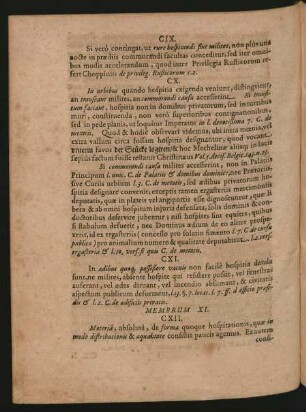 CIX.
Si verò contingat, ut eure hospitandi sive milites, non plùs unâ
nocte in prædiis commorandi facultas conceditur, sed iter omni-
bus modis accelerandum, quod inter Privilegia Rusticorum re-
fert Choppinus de privileg. Rusticorum
CX.
In urbibus quando hospitia exigenda veniunt, distinguitur,
an transituri milites, an commorandi causâ accesserint. Si
hospitia non in domibus privatorum, sed in contubernio
muri, constituenda, non verò superioribus contignationibus,
sed in pede planis, ut loquitur Imperator in l. devotissima 7. C. de
metatis. Quod & hodiè observari videmus, ubi intra mœnia, vel
extra vallum circa fossam hospitia designantur, quod vocant
 & hoc Mechelinæ aliisq; in locis
sæpiùs factum fuisse testatur Christinæus Vol. decis. Belgic.
Si commorandi causâ milites accesserint, non in Palatiis
Principum l. unic. C. de Palatiis & domibus dominicis, nec Prætorio
sive Curiis urbium C. de metatis, sed ædibus privatorum ho-
spitia designare convenit, exceptis tamen ergasteriis mercatorum
deputatis, quæ in platea vel angiporto distentis sibi domibus
& ab omni hospitum injuria defensis, dominis &
ductoribus deservire jubentur : nisi hospites sint equites, quibus
si stabulum defuerit, nec Dominus ædium de eo aliter prospe-
xerit, id ex ergasteriis (concesso pro solatio finestro l.7. C. de cursu
publico) pro animalium numero & qualitate deputabitur.
ergasteria & vers. si quo C. de metatis.
CXI.
In ædibus quoq; possessore vacuis non facilè hospitia danda
sunt, ne milites, absente hospite qui resistere possit, vel fenestras
auferant, vel ædes diruant, vel incendio absumant, & civitatis
aspectum publicum deforment. l.9. §.7. locat. l. 7. ff. d officio præsi-
dis & l. 2. C. de ædificiis privatis.
MEMBRUM XI.
CXII.
Materiâ, absolutâ, de formâ quoque hospitationis, quæ in
modo distributionis & æqualitate consistit paucis agemus. Ea autem
consi-